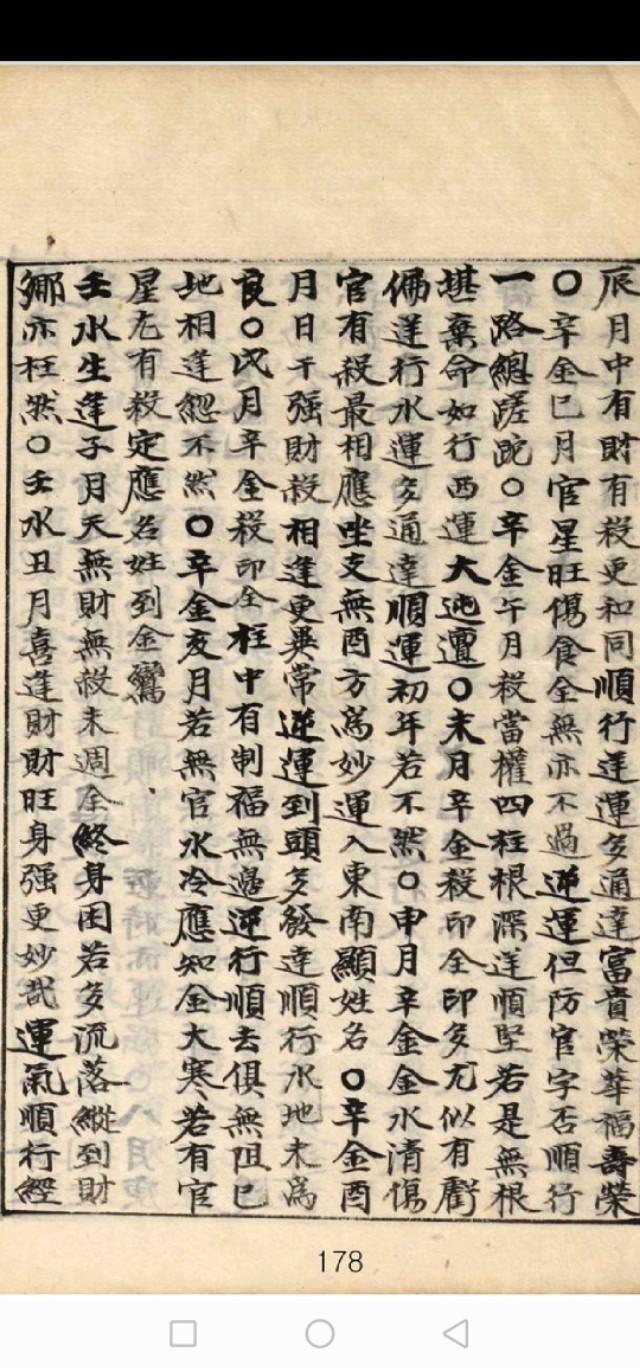 辰月中有財有殺更和同順行運運多通達富貴榮華福壽榮
〇辛金巳月官星旺傷食全無亦不過逆運但防官字否順行
一路總蹉跎〇辛金午月殺當權四柱根深逆順堅若是無根
堪棄命如行西運大迍邅〇未月辛金殺印全印多尤似有虧
偏逆行水運多通達順運初年若不然〇申月辛金金水清傷
官有殺最相應坐支無酉方為妙運入東南顯姓名〇辛金酉
月日干强財殺相逢更異常逆運到頭多發達順行水地未為
良〇戌月辛金殺印全柱中有制福無邊逆行順去俱無阻巳
地相逢緫不然〇辛金亥月若無官水冷應知金大寒若有官
星尤有殺定應名姓到金鸞
壬水生逢子月天無財無殺未週全終身困若多流落縱到財
鄉亦枉然〇壬水丑月喜逢財財旺身强更妙哉運氣順行經
178